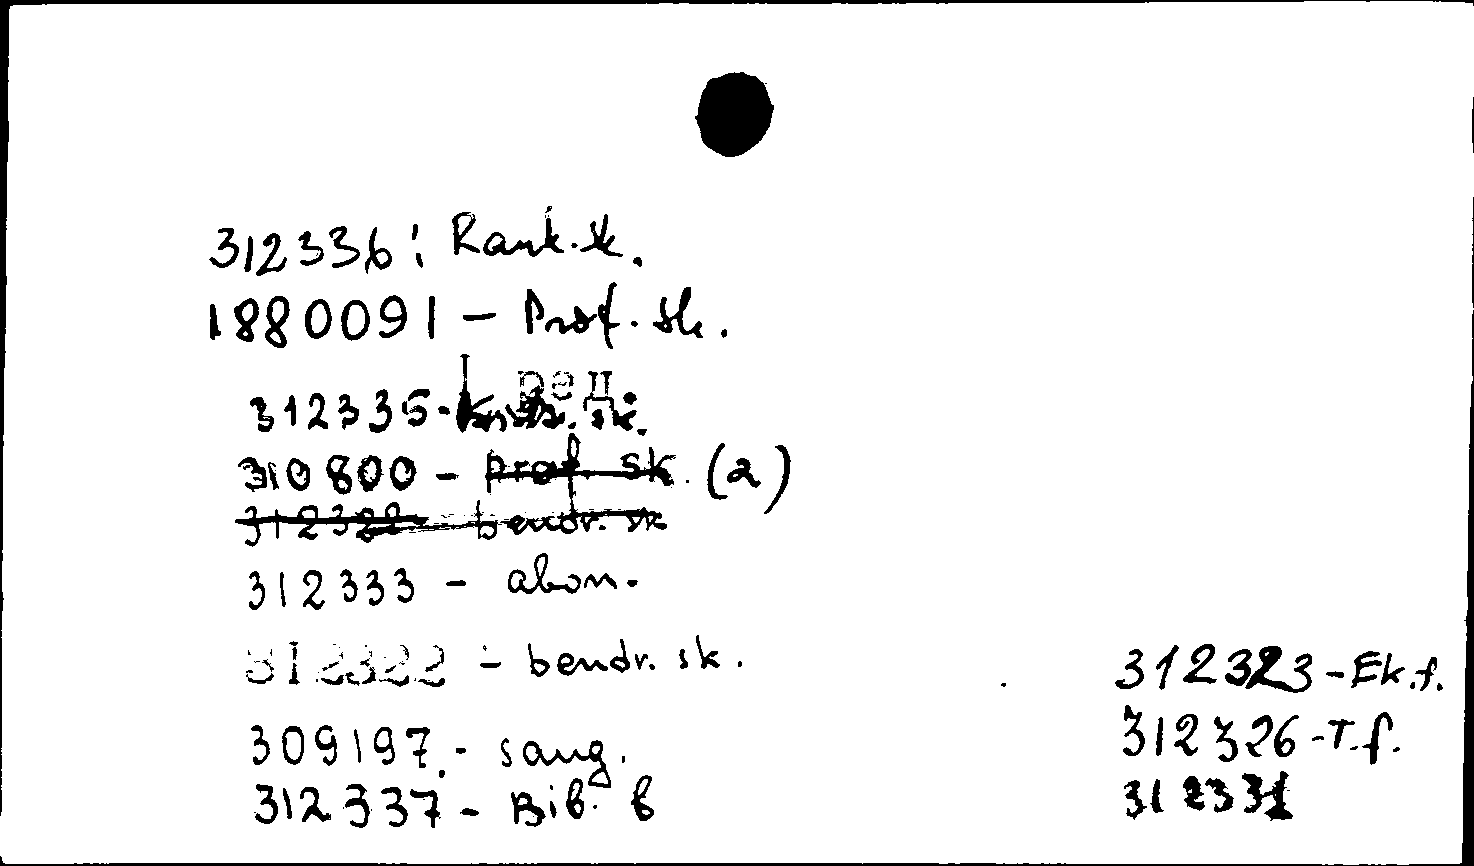 312336: Rank. sk.
1880091 - Prof. sk.
ред.
312335 - sk.
310800 - prof. sk. (2)
312322 - bendr. sk
312333 - abon.
312322 - bendr. sk.
309197. - saug.
312337 - Bib. b
312323 - Ek.f.
312326 - T.f.
312331